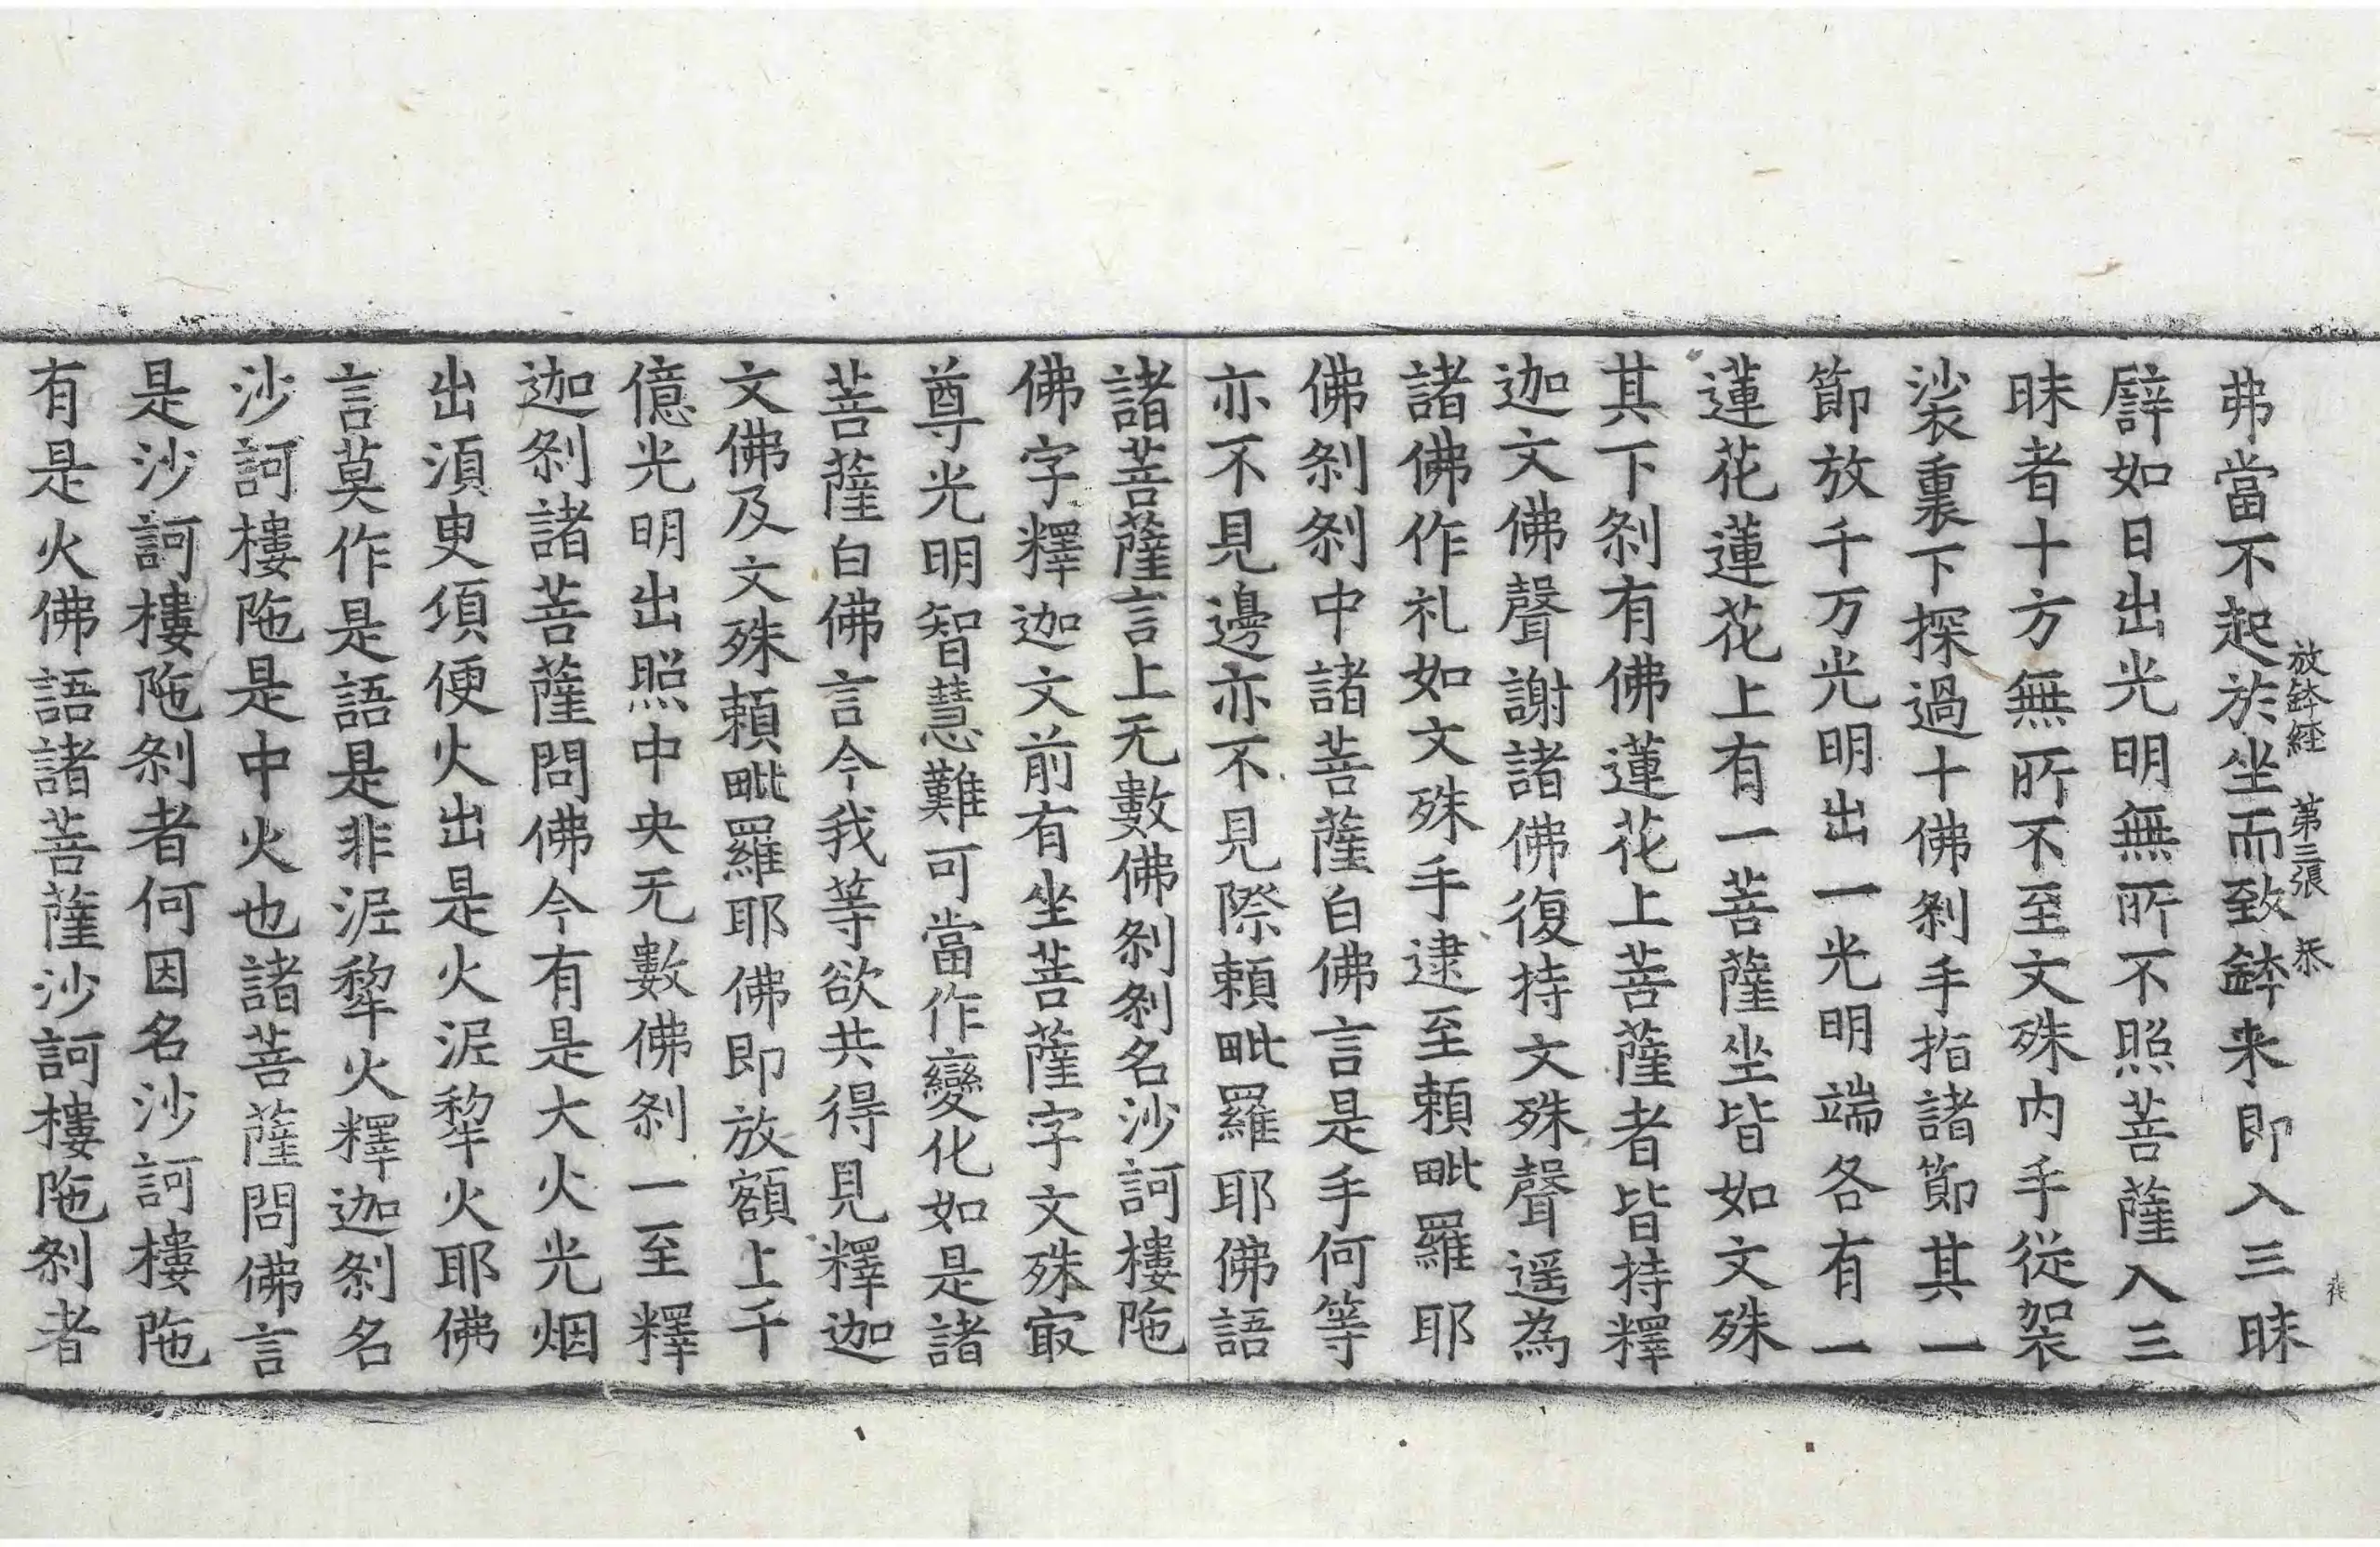 放鉢経 第三張 恭
弗當不起於坐而致鉢来即入三昧
譬如日出光明無所不照菩薩入三
昧者十方無所不至文殊内手從袈
裟裏下探過十佛剎手指諸節其一
節放千万光明出一光明端各有一
蓮花蓮花上有一菩薩坐皆如文殊
其下剎有佛蓮花上菩薩者皆持釋
迦文佛聲謝諸佛復持文殊聲遥為
諸佛作礼如文殊手逮至頼毗羅耶
佛剎剎中諸菩薩白佛言是手何等
亦不見邊亦不見際頼毗羅耶佛語
諸菩薩言上无數佛剎剎名沙訶樓陁
佛字釋迦文前有坐菩薩字文殊冣
尊光明智慧難可當作變化如是諸
菩薩白佛言今我等欲共得見釋迦
文佛及文殊頼毗羅耶佛即放額上千
億光明出照中央无數佛剎一至釋
迦剎諸菩薩問佛今有是大火光烟
出湏臾項便火出是火泥犂火耶佛
言莫作是語是非泥犂火釋迦剎名
沙訶樓陁是中火也諸菩薩問佛言
是沙訶樓陁剎者何因名沙訶樓陁
有是火佛語諸菩薩沙訶樓陁剎者